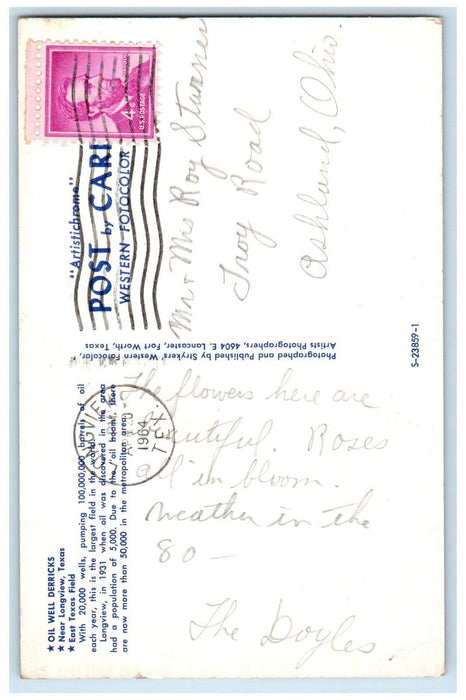 ★ OIL WELL DERRICKS
★ Near Longview, Texas
★ East Texas Field
With 20,000 wells, pumping 100,000,000 barrels of oil
each year, this is the largest field in the world.
Longview, in 1931 when oil was discovered in the area
had a population of 5,000. Due to the "oil boom", there
are now more than 50,000 in the metropolitan area.
"Artistichrome"
POST CARD
by
WESTERN FOTOCOLOR
4¢
U.S. POSTAGE
LONGVIEW
1964
TEX.
Photographed and Published by Strykers' Western Fotocolor,
Artists Photographers, 4604 E. Lancaster, Fort Worth, Texas
S-23859-1
Mr + Mrs Roy
Troy Road
Ashland, Ohio
The flowers here are
beautiful. Roses
all in bloom.
weather in the
80 —
The Doyles